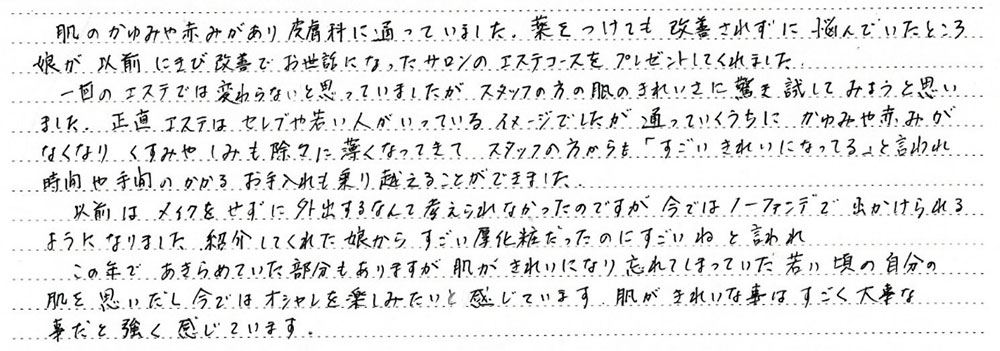 肌のかゆみや赤みがあり皮膚科に通っていました。薬をつけても改善されずに悩んでいたところ
娘が以前にきび改善でお世話になったサロンのエステコースをプレゼントしてくれました。
一回のエステでは変わらないと思っていましたがスタッフの方の肌のきれいさに驚き試してみようと思い
ました。正直エステはセレブや若い人がいっているイメージでしたが通っていくうちにかゆみや赤みが
なくなりくすみやしみも除々に薄くなってきてスタッフの方からも「すごいきれいになってる」と言われ
時間や手間のかかるお手入れも乗り越えることができました。
以前はメイクをせずに外出するなんて考えられなかったのですが今ではノーファンデで出かけられる
ようになりました 紹介してくれた娘からすごい厚化粧だったのにすごいねと言われ
この年であきらめていた部分もありますが肌がきれいになり忘れてしまっていた若い頃の自分の
肌を思いだし今ではオシャレを楽しみたいと感じています。肌がきれいな事はすごく大事な
事だと強く感じています。